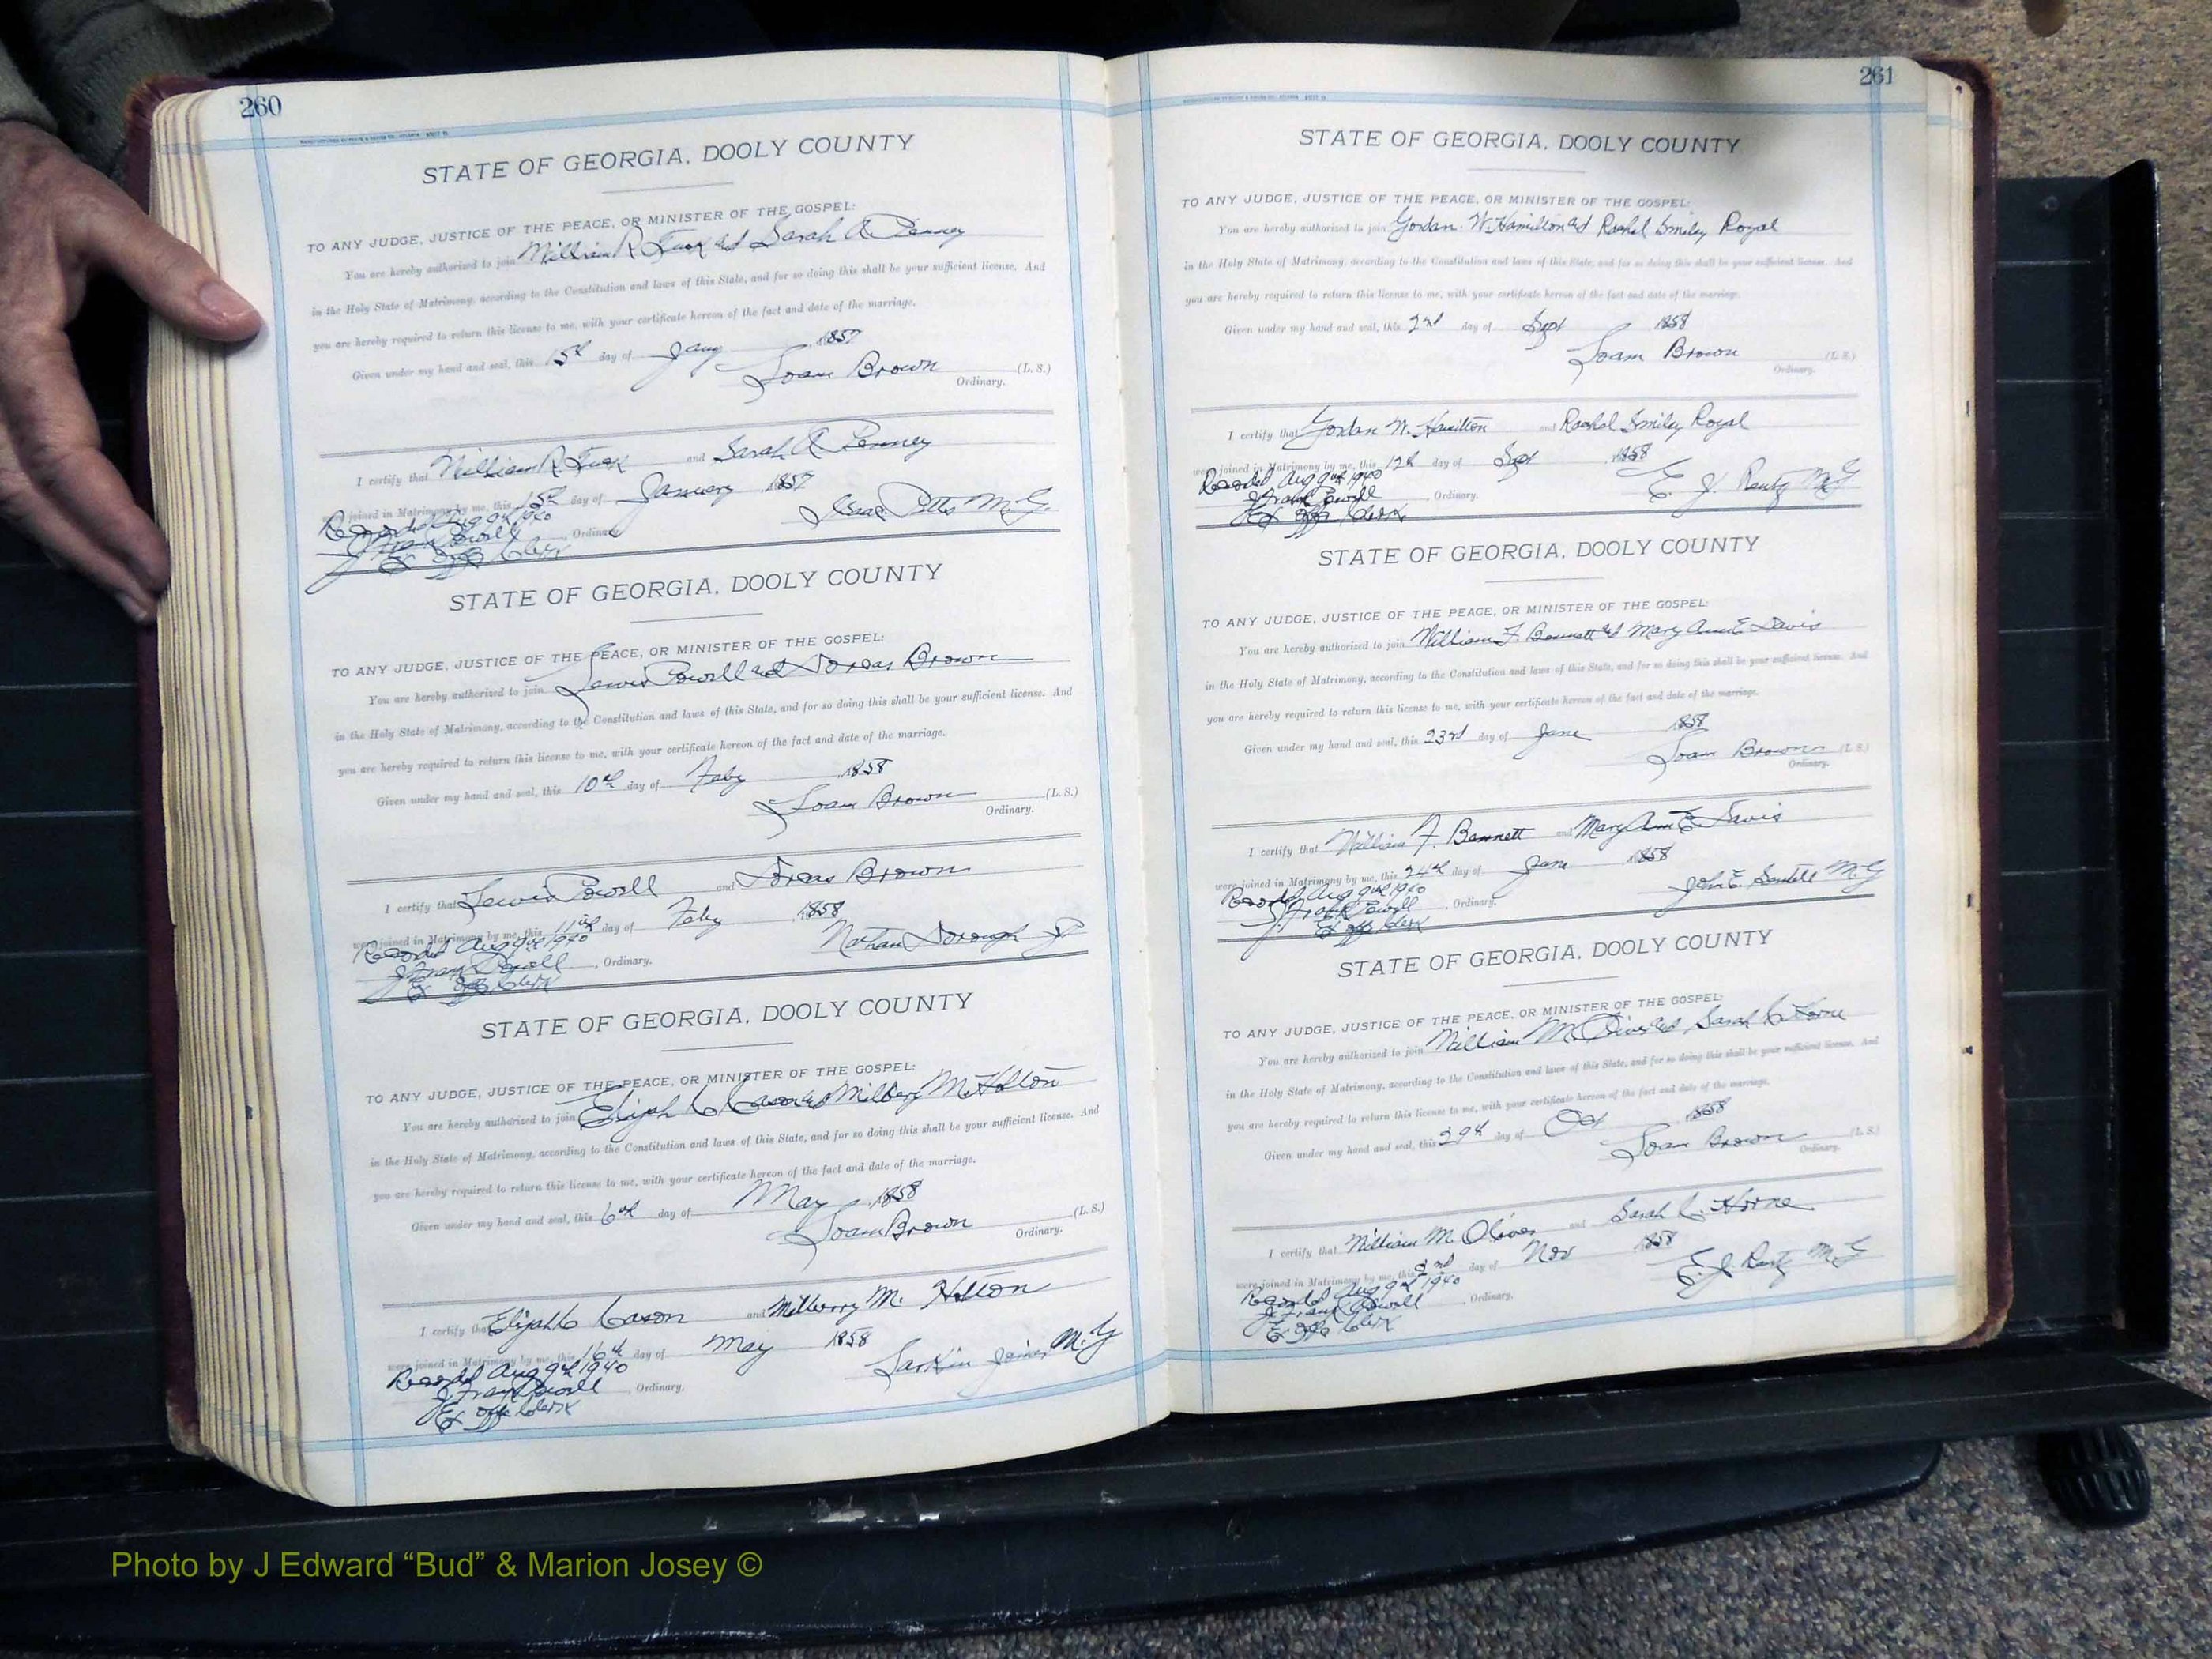 260
STATE OF GEORGIA, DOOLY COUNTY
TO ANY JUDGE, JUSTICE OF THE PEACE, OR MINISTER OF THE GOSPEL:
You are hereby authorized to join William R and Sarah A Penney
in the Holy State of Matrimony, according to the Constitution and laws of this State, and for so doing this shall be your sufficient license. And
you are hereby required to return this license to me, with your certificate hereon of the fact and date of the marriage.
Given under my hand and seal, this 15th day of Jany 1857
Loam Brown (L. S.)
Ordinary.
I certify that William R. and Sarah A Penney
were joined in Matrimony by me, this 15th day of January 1857
Recorded Aug 9th 1940 Pitts M.G.
J Frank Powell, Ordinary.
Ex offo Clerk
STATE OF GEORGIA, DOOLY COUNTY
TO ANY JUDGE, JUSTICE OF THE PEACE, OR MINISTER OF THE GOSPEL:
You are hereby authorized to join Lewis Powell and Dorcas Brown
in the Holy State of Matrimony, according to the Constitution and laws of this State, and for so doing this shall be your sufficient license. And
you are hereby required to return this license to me, with your certificate hereon of the fact and date of the marriage.
Given under my hand and seal, this 10th day of Feby 1858
Loam Brown (L. S.)
Ordinary.
I certify that Lewis Powell and Dorcas Brown
were joined in Matrimony by me, this 11th day of Feby 1858
Recorded Aug 9th 1940 Nathan Dorough JP
J Frank Powell, Ordinary.
Ex offo Clerk
STATE OF GEORGIA, DOOLY COUNTY
TO ANY JUDGE, JUSTICE OF THE PEACE, OR MINISTER OF THE GOSPEL:
You are hereby authorized to join Elijah C Cason and Milbery M. Holton
in the Holy State of Matrimony, according to the Constitution and laws of this State, and for so doing this shall be your sufficient license. And
you are hereby required to return this license to me, with your certificate hereon of the fact and date of the marriage.
Given under my hand and seal, this 6th day of May 1858
Loam Brown (L. S.)
Ordinary.
I certify that Elijah C Cason and Milberry M. Holton
were joined in Matrimony by me, this 16th day of May 1858
Recorded Aug 9th 1940 Larkin Joiner M.G
J Frank Powell, Ordinary.
Ex offo Clerk
261
STATE OF GEORGIA, DOOLY COUNTY
TO ANY JUDGE, JUSTICE OF THE PEACE, OR MINISTER OF THE GOSPEL:
You are hereby authorized to join Gordan W. Hamilton and Rachel Smiley Royal
in the Holy State of Matrimony, according to the Constitution and laws of this State, and for so doing this shall be your sufficient license. And
you are hereby required to return this license to me, with your certificate hereon of the fact and date of the marriage.
Given under my hand and seal, this 2nd day of Sept 1858
Loam Brown (L. S.)
Ordinary.
I certify that Gordan W. Hamilton and Rachel Smiley Royal
were joined in Matrimony by me, this 12th day of Sept 1858
Recorded Aug 9th 1940 E. J. Rentz M.G.
J Frank Powell, Ordinary.
Ex offo Clerk
STATE OF GEORGIA, DOOLY COUNTY
TO ANY JUDGE, JUSTICE OF THE PEACE, OR MINISTER OF THE GOSPEL:
You are hereby authorized to join William F. Bennett and Mary Ann E Davis
in the Holy State of Matrimony, according to the Constitution and laws of this State, and for so doing this shall be your sufficient license. And
you are hereby required to return this license to me, with your certificate hereon of the fact and date of the marriage.
Given under my hand and seal, this 23rd day of June 1858
Loam Brown (L. S.)
Ordinary.
I certify that William F. Bennett and Mary Ann E Davis
were joined in Matrimony by me, this 24th day of June 1858
Recorded Aug 9th 1940 John E. M.G
J. Frank Powell, Ordinary.
Ex offo Clerk
STATE OF GEORGIA, DOOLY COUNTY
TO ANY JUDGE, JUSTICE OF THE PEACE, OR MINISTER OF THE GOSPEL:
You are hereby authorized to join William M. Oliver and Sarah C. Horne
in the Holy State of Matrimony, according to the Constitution and laws of this State, and for so doing this shall be your sufficient license. And
you are hereby required to return this license to me, with your certificate hereon of the fact and date of the marriage.
Given under my hand and seal, this 29th day of Oct 1858
Loam Brown (L. S.)
Ordinary.
I certify that William M. Oliver and Sarah C. Horne
were joined in Matrimony by me, this 2nd day of Nov 1858
Recorded Aug 9th 1940 E. J. Rentz M.G
J. Frank Powell, Ordinary.
Ex offo Clerk
Photo by J Edward “Bud” & Marion Josey ©